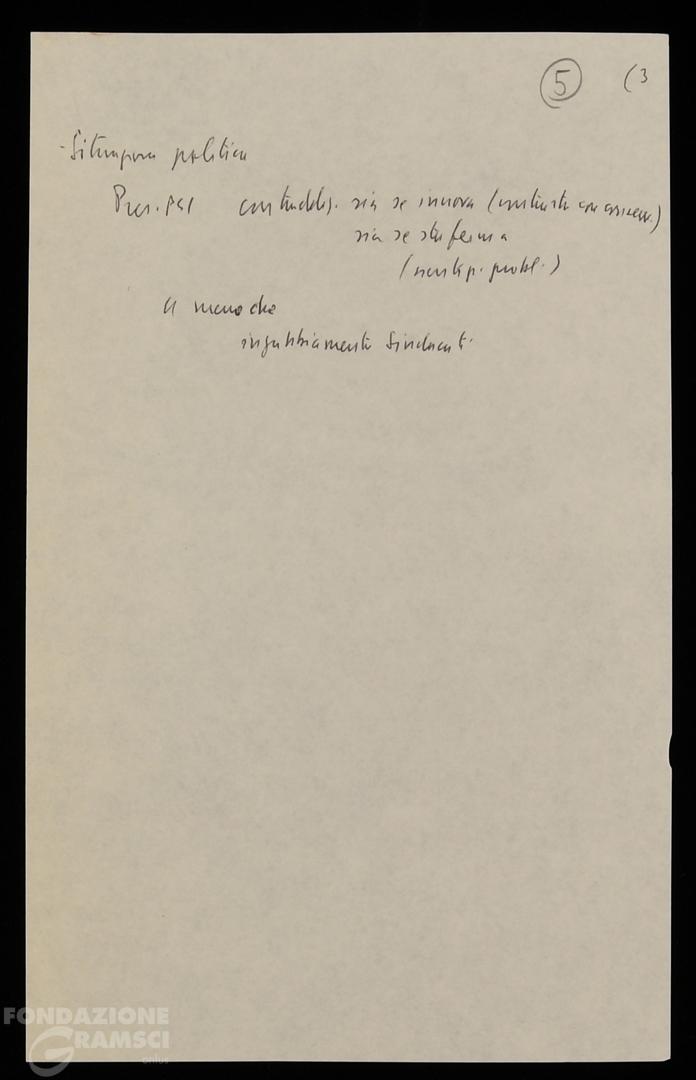 5 (3
- Situazione politica
Pres. PSI contraddiz. sia se innova (contrasto con conserv.)
sia se sta ferma
(non risp. probl.)
A meno che
ingabbiamento Sindacati
FONDAZIONE
GRAMSCI
onlus